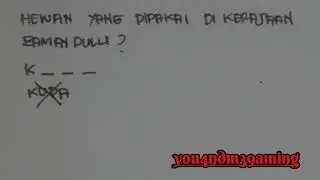 HEWAN YANG DIPAKAI DI KERAJAAN
ZAMAN DULU ?
K _ _ _
KUDA
you4ndm3gaming